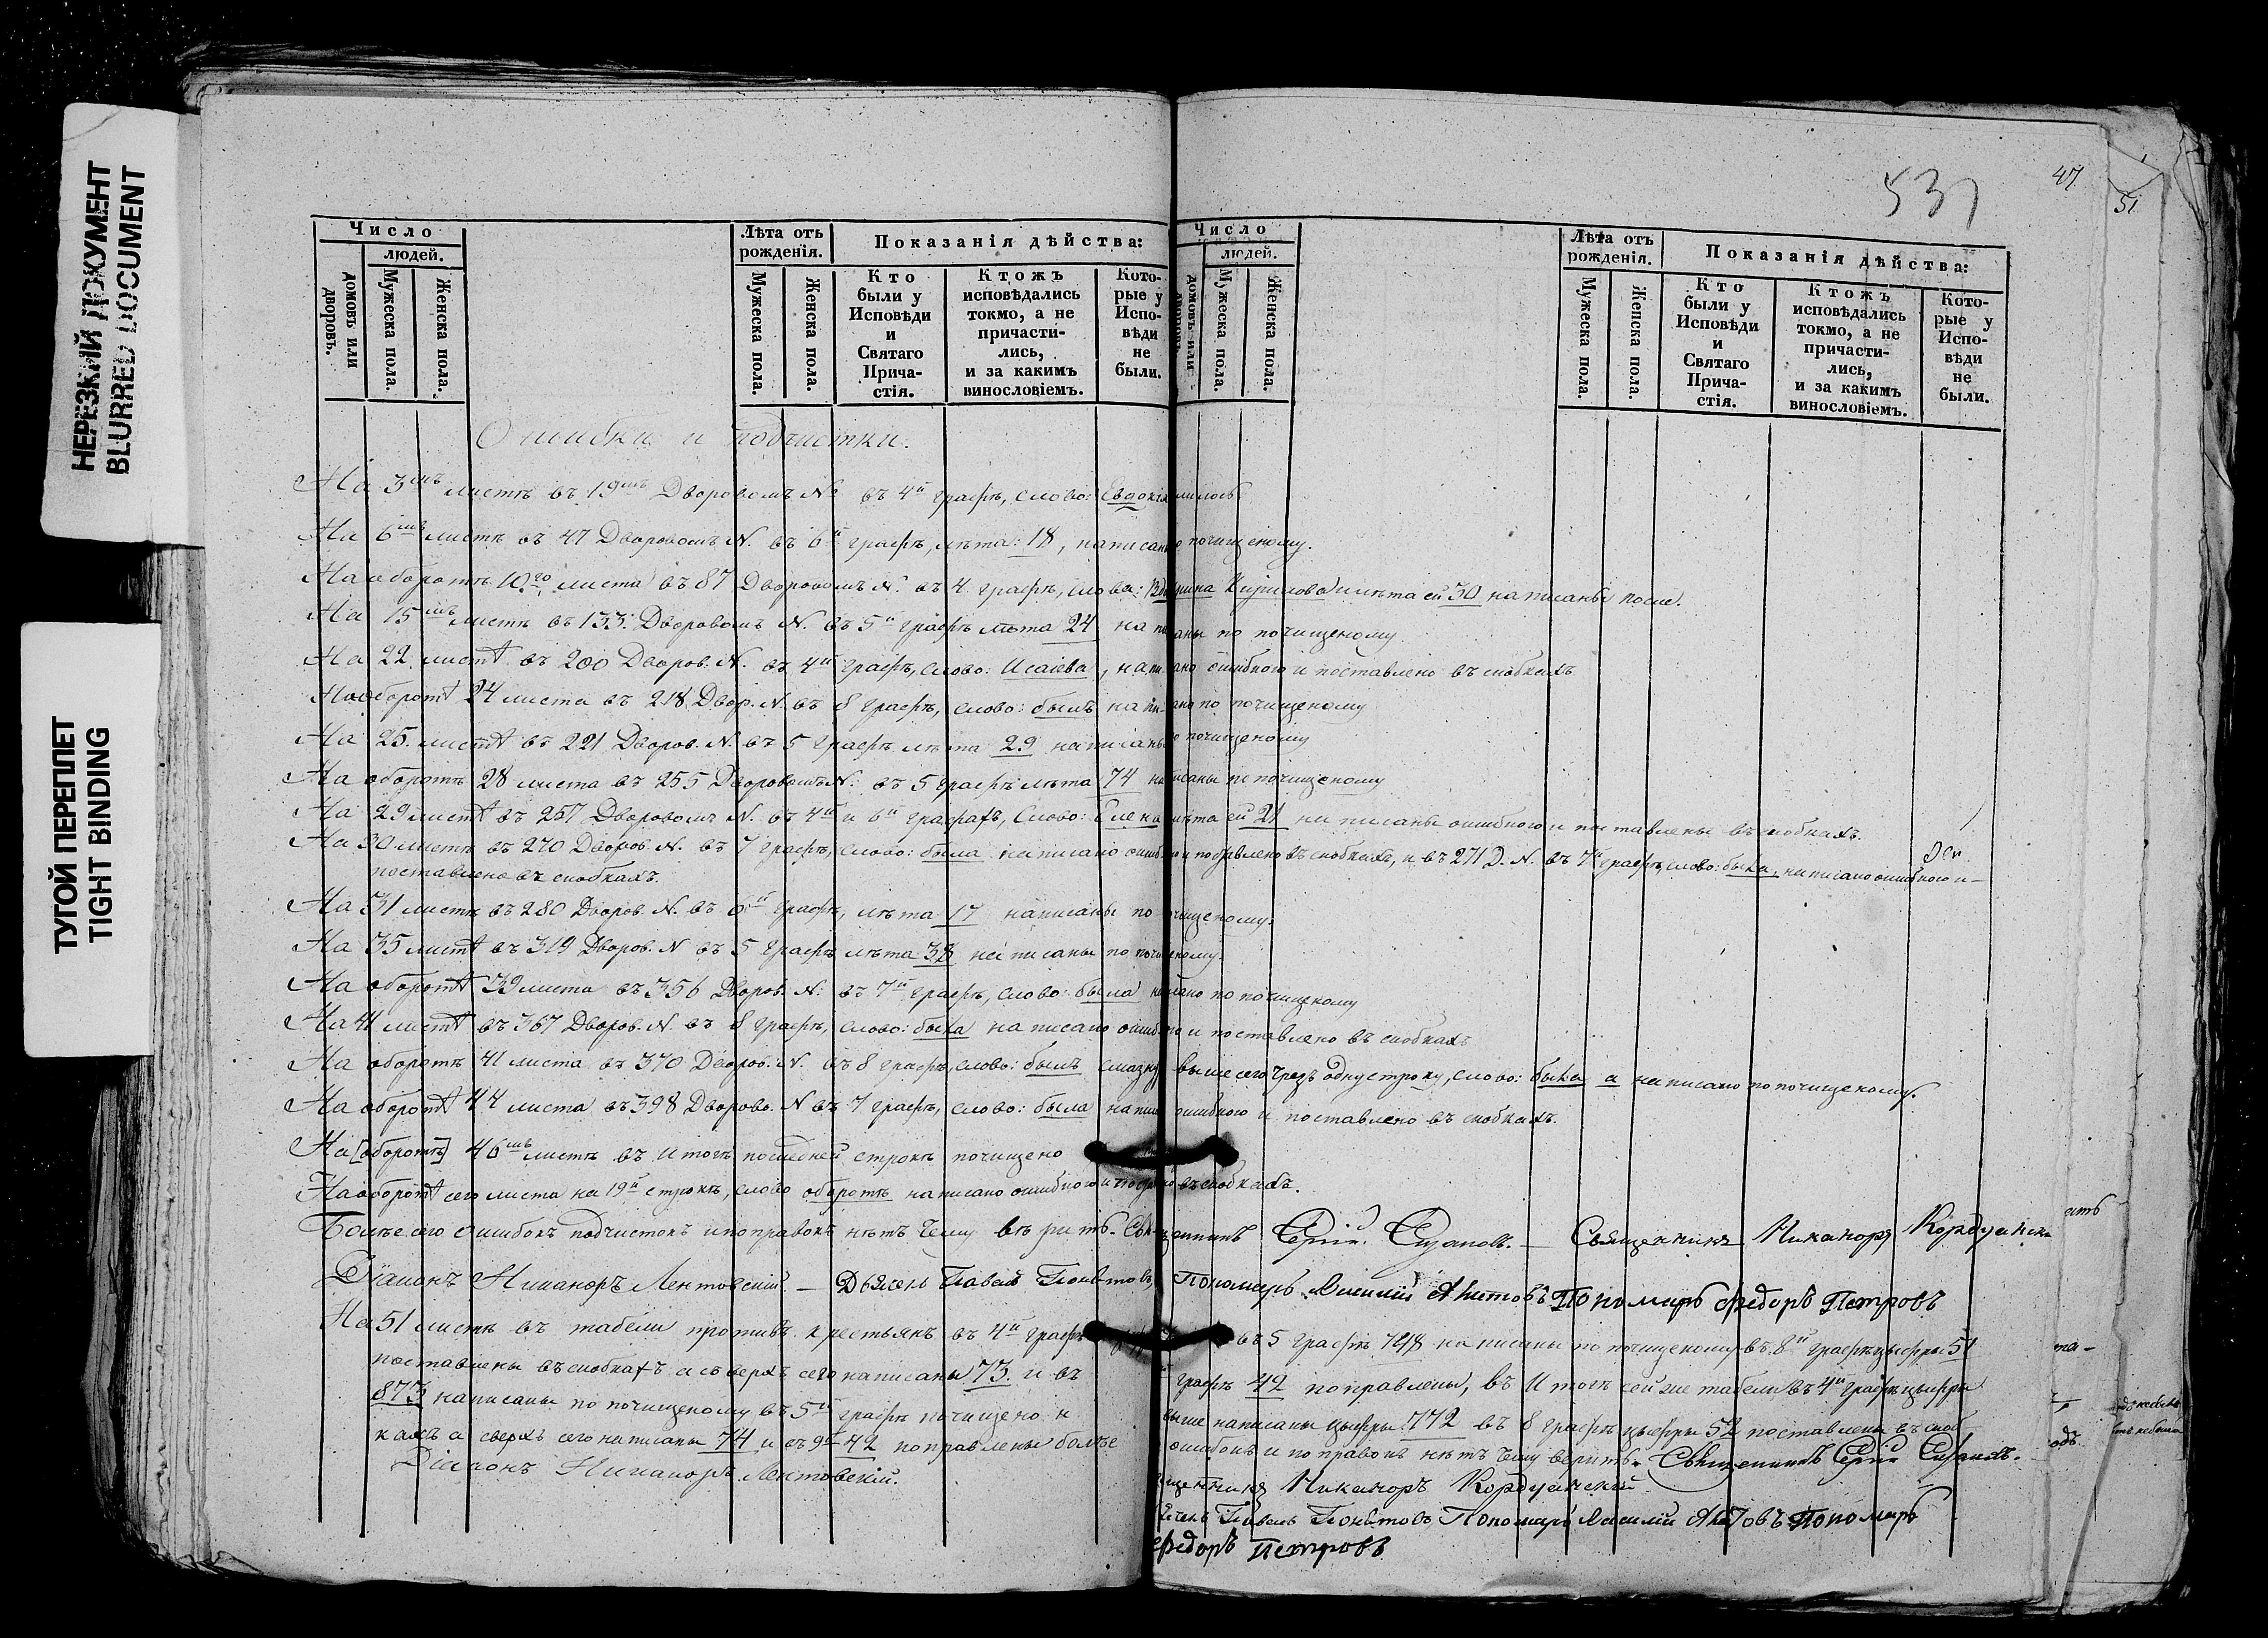 НЕРЕЗКИЙ ДОКУМЕНТ
BLURRED DOCUMENT
ТУГОЙ ПЕРЕПЛЕТ
TIGHT BINDING
537
47
51
Число
людей.
домовъ или дворовъ.
Мужеска пола.
Женска пола.
Лѣта отъ рожденія.
Мужеска пола.
Женска пола.
Показанія дѣйства:
Кто были у Исповѣди и Святаго Прича-стія.
Ктожъ исповѣдались токмо, а не причасти-лись, и за какимъ винословіемъ.
Кото-рые у Испо-вѣди не были.
Число
людей.
домовъ или
Мужеска пола.
Женска пола.
Лѣта отъ рожденія.
Мужеска пола.
Женска пола.
Показанія дѣйства:
Кто были у Исповѣди и Святаго Прича-стія.
Ктожъ исповѣдались токмо, а не причасти-лись, и за какимъ винословіемъ.
Кото-рые у Испо-вѣди не были.
Ошибки и подчистки.
На 3мъ листѣ въ 19мъ Дворовомъ № въ 4й графѣ, слово: Евдокія
На 6мъ листѣ въ 47 Дворовомъ N. въ 6й графѣ, лѣта: 18, написаны по почищеному.
На оборотѣ 10го листа въ 87 Дворовомъ N. въ 4 графѣ, слова: Кирилова и лѣта ей 30 написаны после.
На 15мъ листѣ въ 133. Дворовомъ N. въ 5й графѣ лѣта 24 написаны по почищеному
На 22 листѣ въ 200 Дворов. N. въ 4й графѣ, слово: Исаіева, написано ошибкою и поставлено въ скобкахъ
На оборотѣ 24 листа въ 218 Двор. N. въ 8 графѣ, слово: былъ написано по почищеному
На 25. листѣ въ 221 Дворов. N. въ 5 графѣ лѣта 29 написаны по почищеному
На оборотѣ 28 листа въ 255 Дворовомъ N. въ 5 графѣ лѣта 74 написаны по почищеному
На 29 листѣ въ 257 Дворовомъ N. въ 4й и 6й графахъ, Слово: Елена лѣта ей 21 написаны ошибкою и поставлены въ скобкахъ.
На 30 листѣ въ 270 Дворов. N. въ 7 графѣ, слово: была написано ошибкою и поставлено въ скобкахъ, и въ 271 Д. N. въ 7й графѣ, слово: была, написано ошибкою и
поставлено въ скобкахъ.
На 31 листѣ въ 280 Дворов. N. въ 6й графѣ, лѣта 17 написаны по почищеному.
На 35 листѣ въ 319 Дворов. N въ 5 графѣ лѣта 38 написаны по почищеному.
На оборотѣ 39 листа въ 356 Дворов. N. въ 7й графѣ, слово: была написано по почищеному
На 41 листѣ въ 367 Дворов. N. въ 8 графѣ, слово: была написано ошибкою и поставлено въ скобкахъ
На оборотѣ 41 листа въ 370 Дворов. N. въ 8 графѣ, слово: былъ выше сего чрезъ одну строку, слово: была а написано по почищеному.
На оборотѣ 44 листа въ 398 Дворово. N въ 7 графѣ, слово: была написано ошибкою и поставлено въ скобкахъ.
На [оборотѣ] 46мъ листѣ въ Итогѣ последней строкѣ почищено
На оборотѣ сего листа на 19й строкѣ, слово оборотѣ написано ошибкою и въ скобкахъ.
Болѣе сего ошибокъ подчистокъ и поправокъ нѣтъ Чему вѣрить. Священникъ Сергій Священникъ Никаноръ
Діаконъ Никаноръ Лентовскій. — Дьячекъ Павелъ Пономарь Василій Пономарь Федоръ Петровъ
На 51 листѣ въ табели противъ крестьянъ въ 4й графѣ въ 5 графѣ 748 написаны по почищеному въ 8й графѣ цыфры 51
поставлены въ скобкахъ а сверхъ сего написаны 73. и въ графѣ 42 поправлены, въ Итогѣ сей же табели въ 4й графѣ цыфры
873 написаны по почищеному въ 5й графѣ почищено и выше написаны цыфры 772 въ 8 графѣ цыфры 52 поставлены въ скоб
кахъ а сверхъ сего написаны 74 и въ 9й 42 поправлены болѣе ошибокъ и поправокъ нѣтъ Чему верить. Священникъ Сергій
Діаконъ Никаноръ Лентовскій. Никаноръ
Павелъ Пономарь Василій Пономарь
Федоръ Петровъ